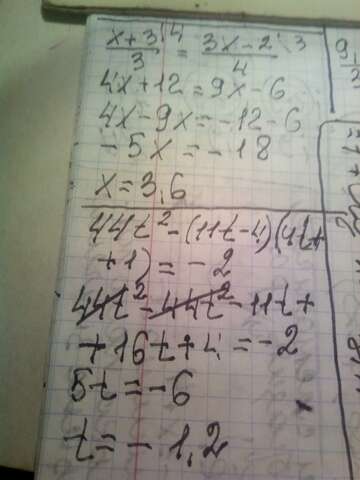 x+3/3 ·4 = 3x-2/4 ·3
4x+12=9x-6
4x-9x=-12-6
-5x=-18
x=3,6
44t²-(11t-4)(4t+
+1)=-2
44t²-44t²-11t+
+16t+4=-2
5t=-6
t=-1,2